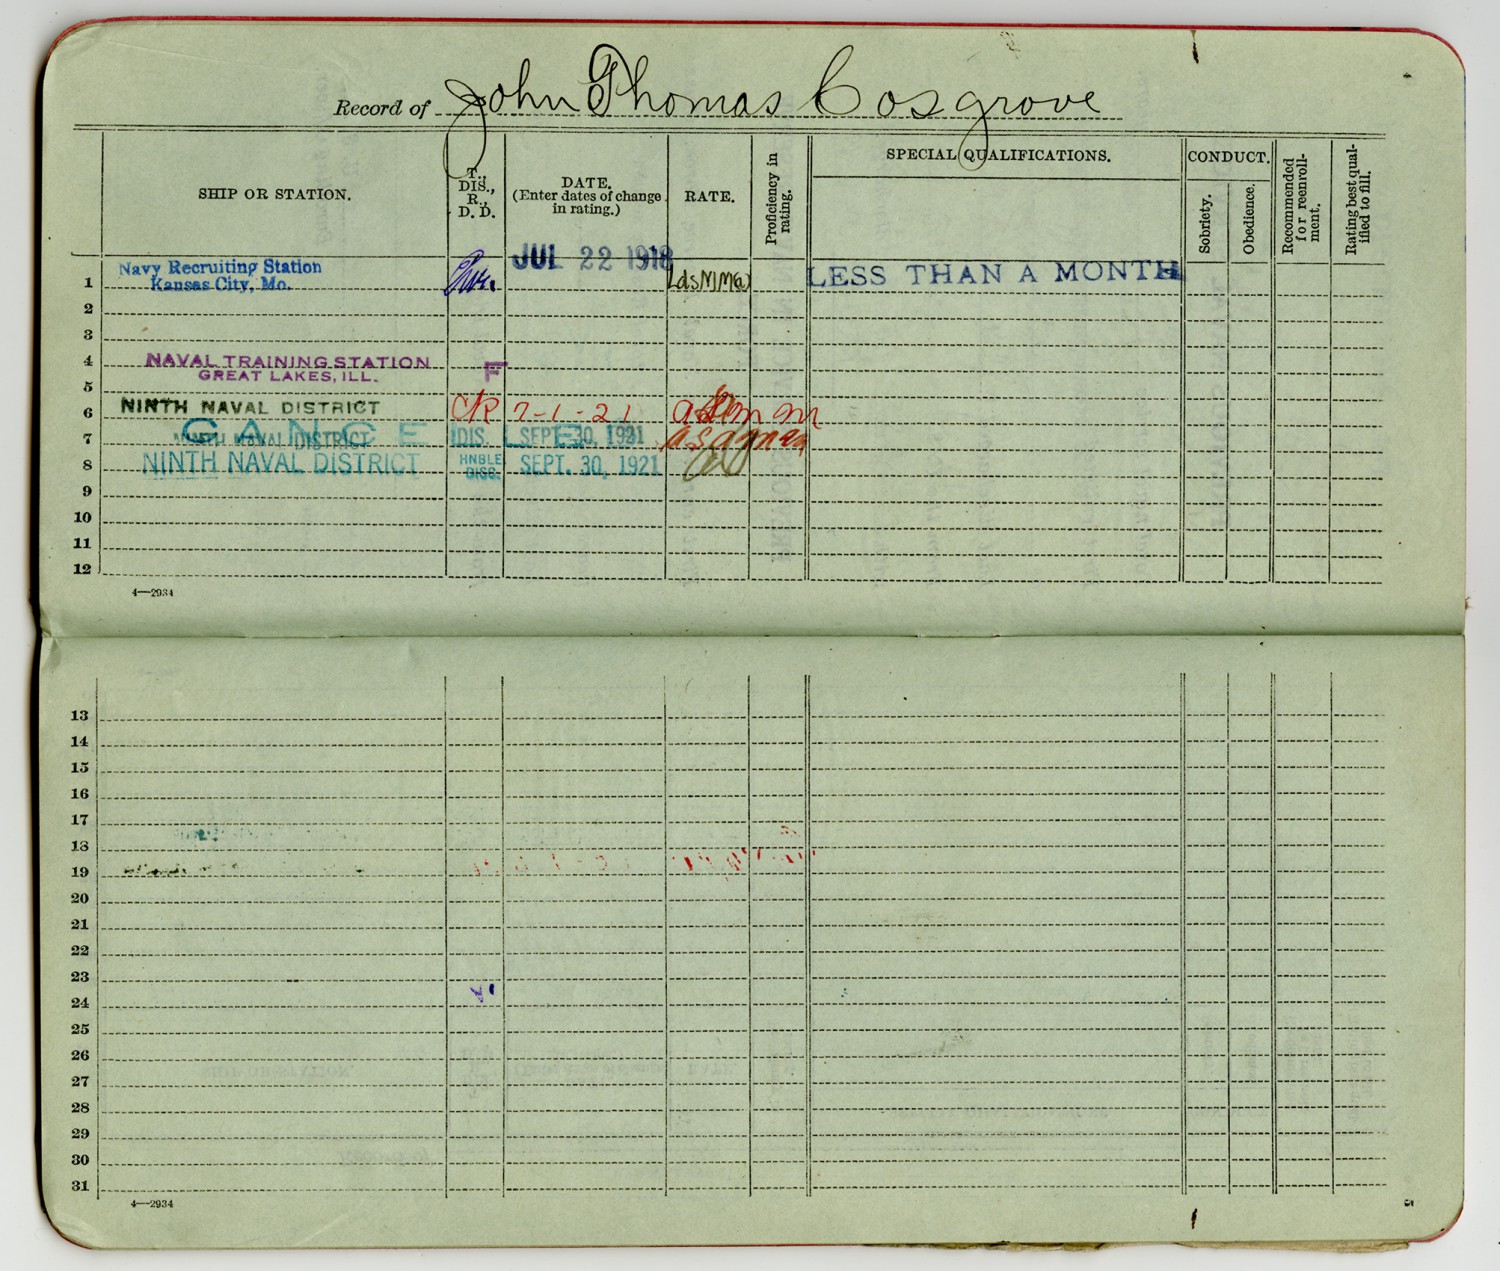 Record of John Thomas Cosgrove
SHIP OR STATION.
T., DIS., R., D. D.
DATE. (Enter dates of change in rating.)
RATE.
Proficiency in rating.
SPECIAL QUALIFICATIONS.
CONDUCT.
Sobriety.
Obedience.
Recommended for reenrollment.
Rating best qualified to fill.
JUL 22 1918
Navy Recruiting Station
1 Kansas City, Mo. LdsMM(a) LESS THAN A MONTH
2
3
4 NAVAL TRAINING STATION F
GREAT LAKES, ILL.
5
6 NINTH NAVAL DISTRICT 7-1-21
CANCELED
7 NINTH NAVAL DISTRICT DIS. SEPT. 30, 1921
8 NINTH NAVAL DISTRICT HNBLE DISC. SEPT. 30, 1921
9
10
11
12
4—2934
13
14
15
16
17
18
19
20
21
22
23
24
25
26
27
28
29
30
31
4—2934
5